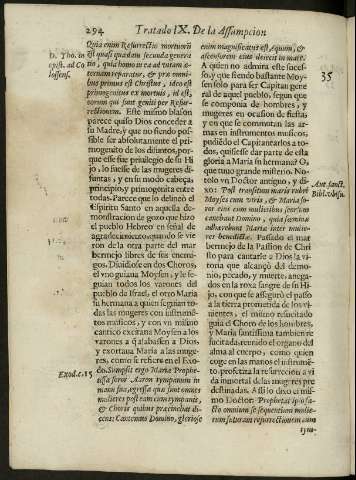 294 Tratado IX. De la Assumpcion
Quia enim Resurrectio mortuorũ
est quasi quædam secunda genera
tio, quia homo in ea ad vitam æ-
ternam reparatur, & præ omni
bus primus est Christus, ideo est
primogenitus ex mortuis, id est,
eorum qui sunt geniti per Resur-
rectionem. Este mismo blason
parece quiso Dios conceder a
su Madre, y que no siendo pos-
sible ser absolutamente el pri-
mogenito de los difuntos, por-
que esse fue priuilegio de su Hi
jo, lo fuesse de las mugeres di-
funtas, y en su modo cabeça,
principio, y primogenita entre
todas. Parece que lo delineò el
Espiritu Santo en aquella de-
monstracion de gozo que hizo
el pueblo Hebreo en señal de
agradecimiento, quando se vie
ron de la otra parte del mar
bermejo libres de sus enemi-
gos. Diuidiose en dos Choros,
el vno guiaua Moysen, y le se-
guian todos los varones del
pueblo de Israel, el otro Maria
su hermana a quien seguian to-
das las mugeres con instrumẽ-
tos musicos, y con vn mismo
cantico exortaua Moysen a los
varones a q̃ alabassen a Dios,
y exortaua Maria a las muge-
res, como se refiere en el Exo-
do. Sumpsit ergo Maria Prophe-
tissa soror Aaron tympanum in
manu sua, egressæ que sunt omnes
mulieres post eam cum tympanis,
& Choris quibus præcinebat di-
cens: Cantemus Domino, gloriose
D. Tho. in
epist. ad Co
lossens.
Exod. c. 15
enim magnificatus est, equum, &
ascensorem eius deiecit in mare.
A quien no admira este suces-
so, y que siendo bastante Moy-
sen solo para ser Capitan gene
ral de aquel pueblo, segun que
se componia de hombres, y
mugeres en ocasion de fiesta,
y en que se commutan las ar-
mas en instrumentos musicos,
pudiẽdo el Capitanearlos a to-
dos, quisiesse dar parte de esta
gloria a Maria su hermana? O,
que tuuo grande misterio. No-
tolo vn Doctor antiguo, y di-
xo: Post transitum maris rubri
Moyses cum viris, & Maria so-
ror eius cum mulieribus seorsum
canebant Domino, quia fœminæ
adhærebant Maria inter mulie-
res benedictæ. Passado el mar
bermejo de la Passion de Chri
sto para cantarle a Dios la vi-
toria que alcançò del demo-
nio, pecado, y muerte, anega-
dos en la roxa sangre de su Hi-
jo, con que le assegurò el passo
a la tierra prometida de los vi-
uientes, el mismo resucitado
guia el Choro de los hombres,
y Maria santissima tambien re
sucitada, reunido el organo del
alma al cuerpo, como quien
coge en las manos el instrumẽ-
to, profetiza la resurreccion a vi
da inmortal de las mugeres pre
destinadas. Assi lo dixo el mis-
mo Doctor: Prophetat ipso fa-
cto omnium se sequentium mulie-
rum futuram resurrectionem cum
35
Ant. sanct.